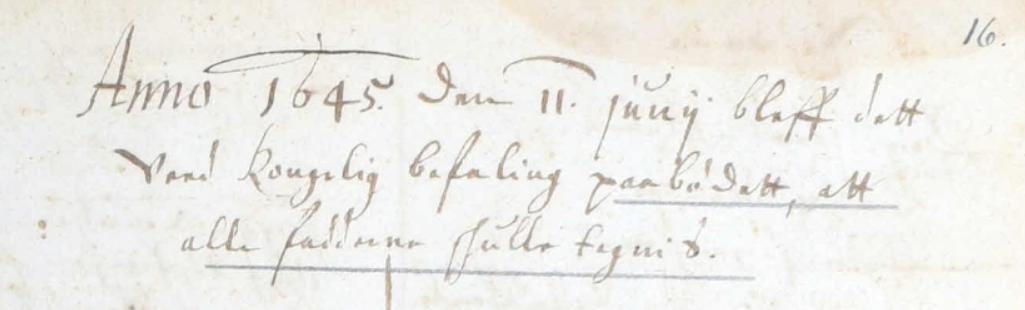 16.
Anno 1645. Den 11. junij bleff dett
Veed Kongelig befaling paabødett, att
alle fadderne skulle tegnis.